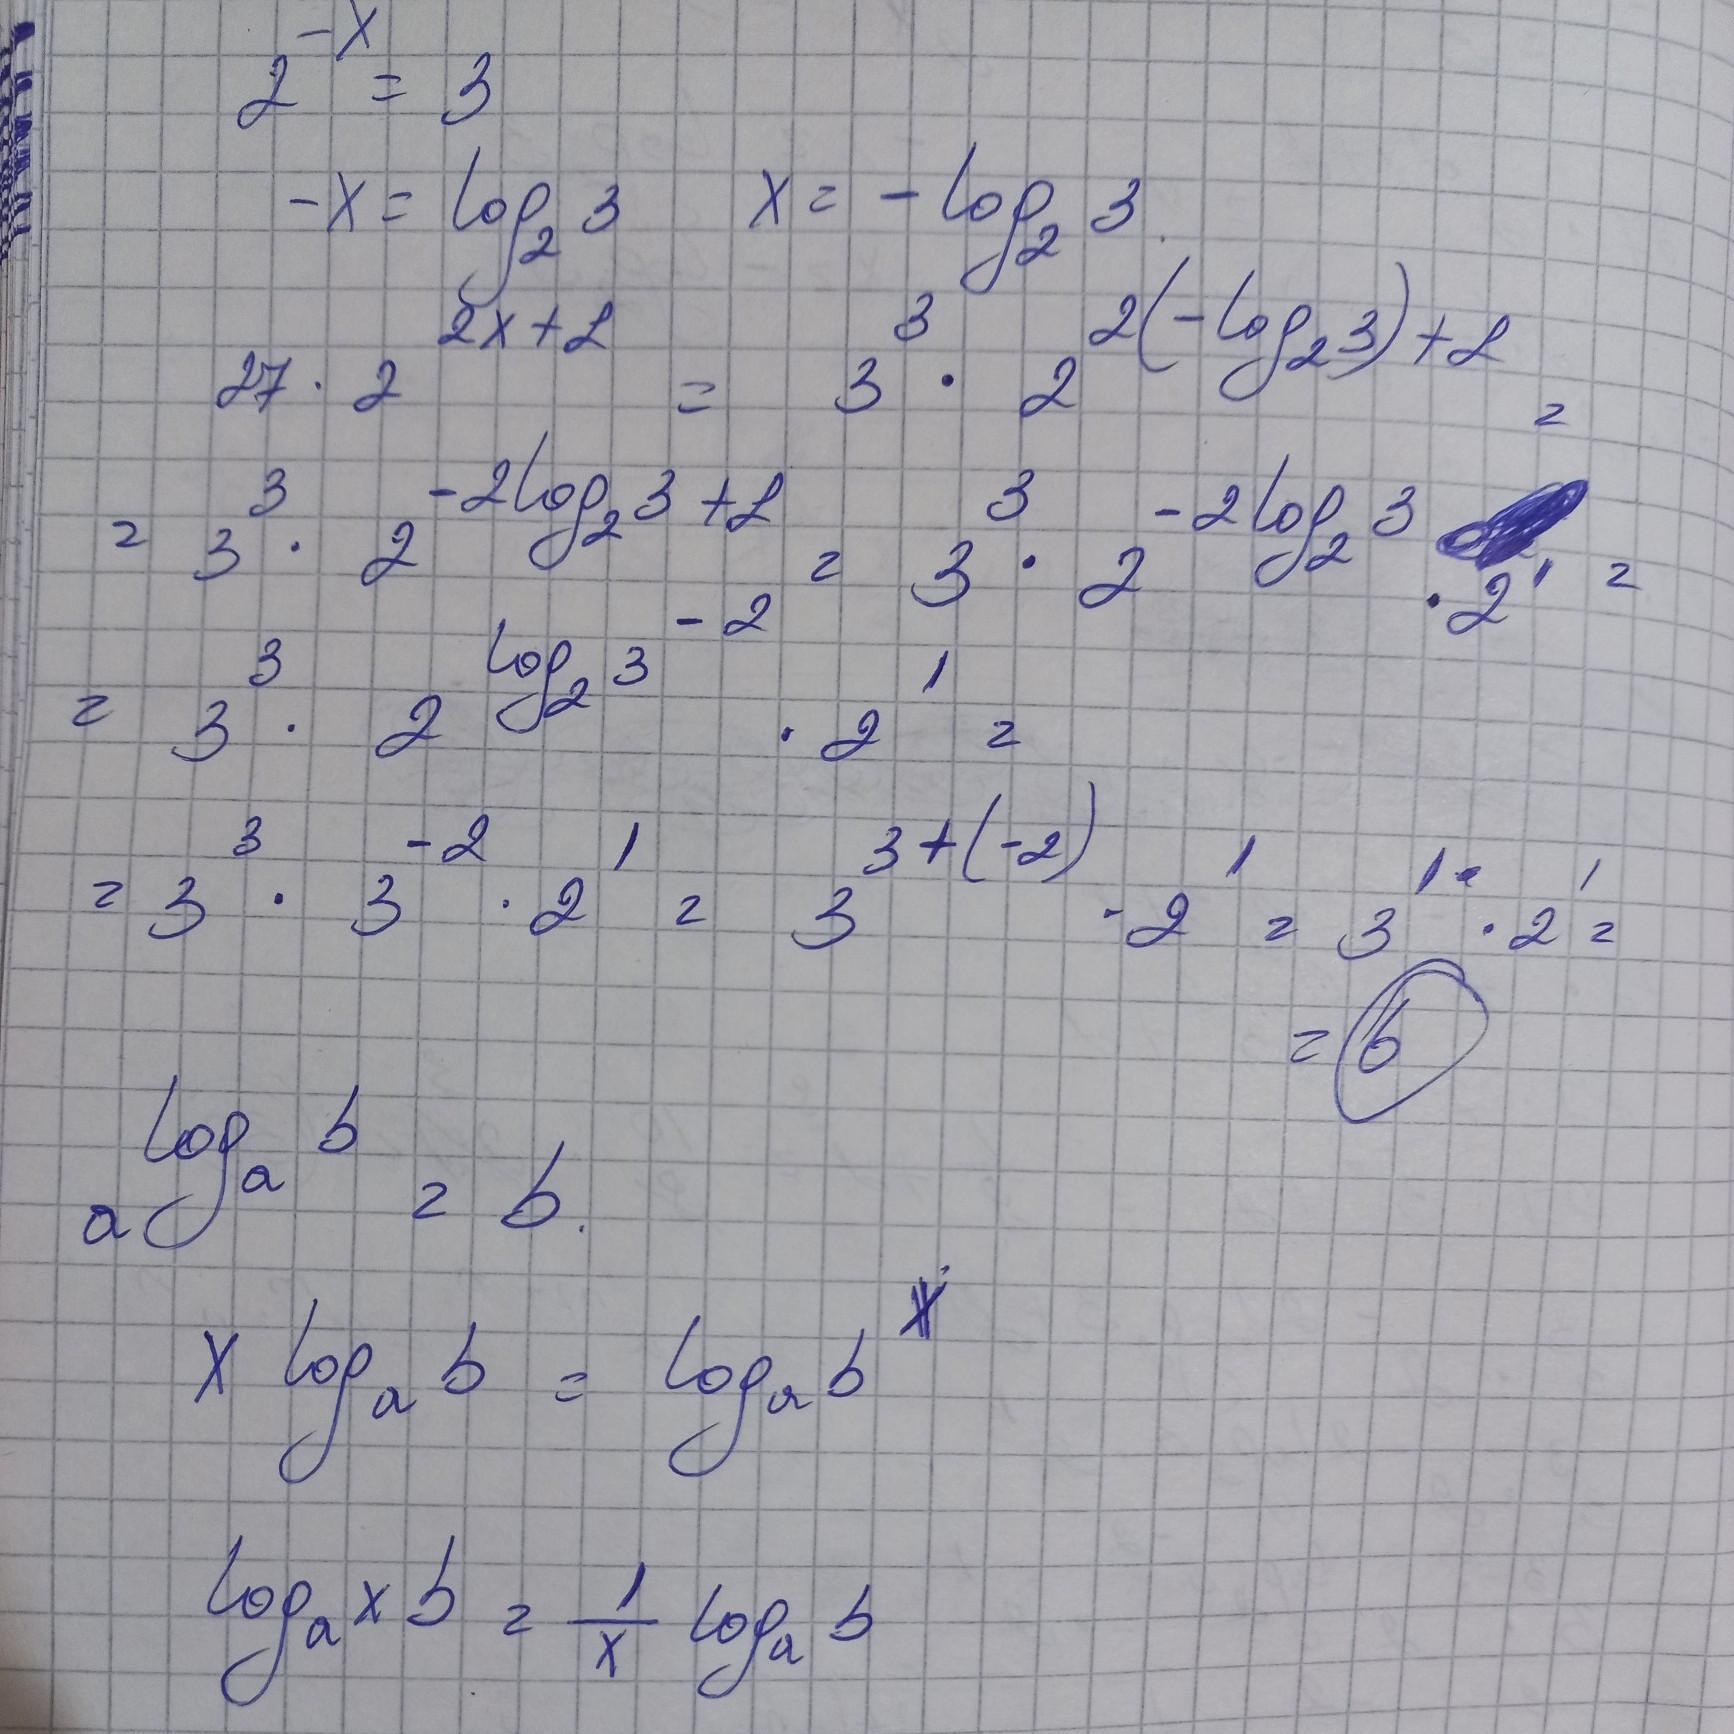 2^{-x} = 3
-x = log_2 3    x = -log_2 3.
27 · 2^{2x+1} = 3^3 · 2^{2(-log_2 3)+1} =
= 3^3 · 2^{-2log_2 3+1} = 3^3 · 2^{-2log_2 3} · 2^1 =
= 3^3 · 2^{log_2 3^{-2}} · 2^1 =
= 3^3 · 3^{-2} · 2^1 = 3^{3+(-2)} · 2^1 = 3^1 · 2^1 =
= 6
a^{log_a b} = b.
x log_a b = log_a b^x
log_{a^x} b = \frac{1}{x} log_a b